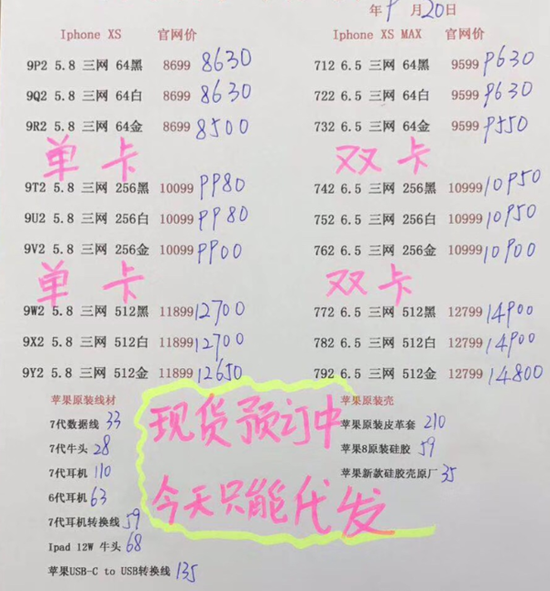 年 9 月 20 日
Iphone XS 官网价 Iphone XS MAX 官网价
9P2 5.8 三网 64黑 8699 8630 712 6.5 三网 64黑 9599 9630
9Q2 5.8 三网 64白 8699 8630 722 6.5 三网 64白 9599 9630
9R2 5.8 三网 64金 8699 8500 732 6.5 三网 64金 9599 9550
单卡 双卡
9T2 5.8 三网 256黑 10099 9980 742 6.5 三网 256黑 10999 10950
9U2 5.8 三网 256白 10099 9980 752 6.5 三网 256白 10999 10950
9V2 5.8 三网 256金 10099 9900 762 6.5 三网 256金 10999 10900
单卡 双卡
9W2 5.8 三网 512黑 11899 12700 772 6.5 三网 512黑 12799 14900
9X2 5.8 三网 512白 11899 12700 782 6.5 三网 512白 12799 14900
9Y2 5.8 三网 512金 11899 12650 792 6.5 三网 512金 12799 14800
苹果原装线材
7代数据线 33
7代牛头 28
7代耳机 110
6代耳机 63
7代耳机转换线 59
Ipad 12W 牛头 68
苹果USB-C to USB转换线 135
现货预订中
今天只能代发
苹果原装壳
苹果原装皮革套 210
苹果8原装硅胶 59
苹果新款硅胶壳原厂 35